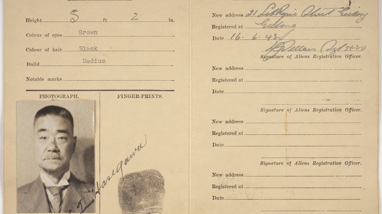 Height 5 ft. 2 in.
Colour of eyes Brown
Colour of hair Black
Build Medium
Notable marks
PHOTOGRAPH. FINGER-PRINTS.
Hasegawa
New address 21
Registered at Geelong
Date 16-6-43
Signature of Aliens Registration Officer.
New address
Registered at
Date
Signature of Aliens Registration Officer.
New address
Registered at
Date
Signature of Aliens Registration Officer.
New address
Registered at
Date